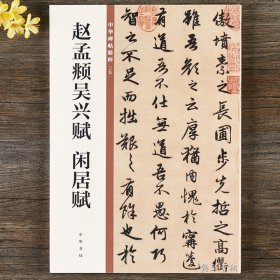 中华碑帖精粹
赵孟頫吴兴赋 闲居赋
中华书局
傲墳素之長圃步先哲之高衢
雖吾顏之云厚猶内愧於甯蘧
有道吾不仕無道吾不愚何巧
智之不足而拙艱之有餘也